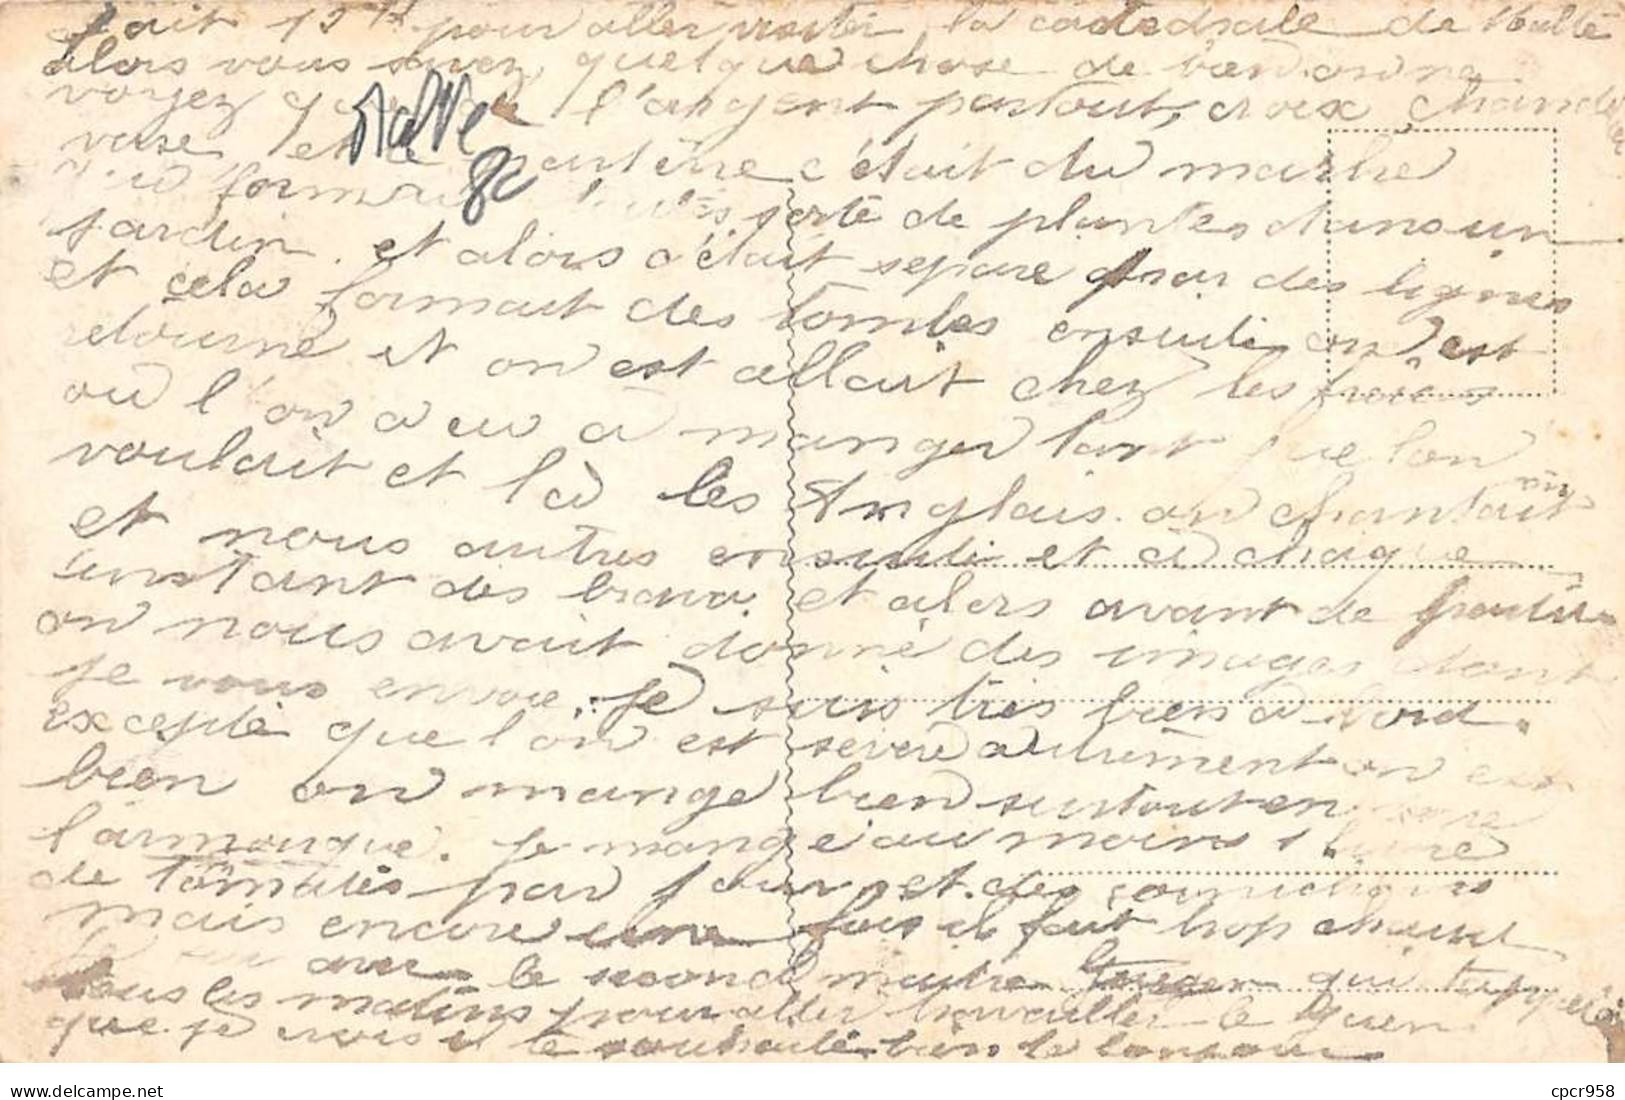 fait 15 pour aller visiter la catedrale de Malte
alors vous savez quelque chose de bien orné
voyez l'argent partout, croix chande
vase et le c'était du marbre
formait toutes sorte de plantes dans un
jardin. et alors c'était separé par des lignes
et cela formait des tombes ensuite on est
retourné et on est allait chez les frères
où l'on a eu à manger tant que l'on
voulait et là les Anglais on chantait
et nous autres ensuite et à chaque
instant des bravo. et alors avant de partir
on nous avait donné des images dont
je vous envoie. Je suis très bien à bord.
excepté que l'on est sévère autrement on est
bien on mange bien surtout en
l'armonque. je mange au moins 1 livre
de tomates par jour et des cornichons
mais encore une fois il fait trop chaud
le second maitre qui t'appelé
tous les matins pour aller travailler le
que je crois il te souhaite bien le bonjour
Malte
8c
cpcr958